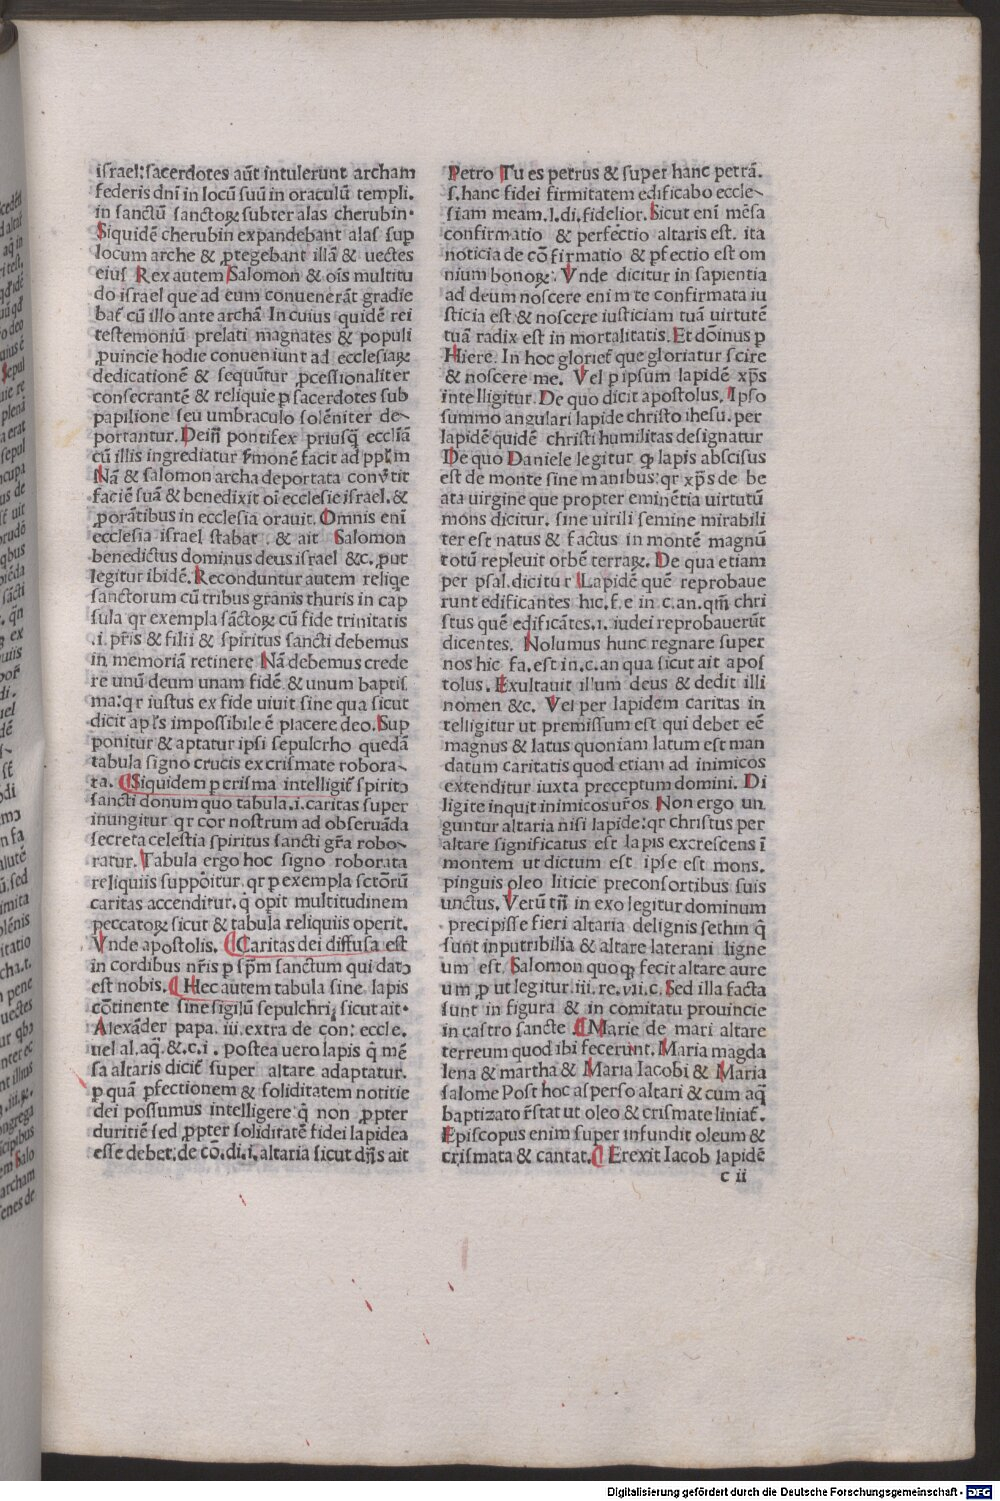 israel: sacerdotes aūt intulerunt archam
federis dnī in locū suū in oraculū templi.
in sanctū sanctoꝝ subter alas cherubin.
Siquidē cherubin expandebant alas sup
locum arche & ꝓtegebant illā & uectes
eius Rex autem Salomon & oīs multitu
do israel que ad eum conuenerāt gradie
bat᷑ cū illo ante archā In cuius quidē rei
testemoniū prelati magnates & populi
ꝓuincie hodie conueniunt ad ecclesiaꝝ
dedicationē & sequūtur ꝓcessionaliter
consecrantē & reliquie ꝑ sacerdotes sub
papilione seu umbraculo solēniter de-
portantur. Dein̄ pontifex priusq̄ eccliā
cū illis ingrediatur s̄monē facit ad ppl̄m
Nā & salomon archa deportata conv̄tit
faciē suā & benedixit oī ecclesie israel. &
ꝓorātibus in ecclesia orauit. Omnis enī
ecclesia israel stabat. & ait Salomon
benedictus dominus deus israel &c. put
legitur ibidē. Reconduntur autem reliqe
sanctorum cū tribus granis thuris in cap
sula qr exempla sāctoꝝ cū fide trinitatis
.i. pr̄is & filii & spiritus sancti debemus
in memoriā retinere Nā debemus crede
re unū deum unam fidē & unum baptis
ma: qr iustus ex fide uiuit sine qua sicut
dicit apl̄s impossibile ē placere deo. Sup
ponitur & aptatur ipsi sepulcrho quedā
tabula signo crucis ex crismate robora-
ta. ¶ Siquidem ꝑ crisma intelligit᷑ spiritꝰ
sancti donum quo tabula .i. caritas super
inungitur qr cor nostrum ad obseruāda
secreta celestia spiritus sancti grā robo-
ratur. Tabula ergo hoc signo roborata
reliquiis suppōitur. qr ꝑ exempla sctōrū
caritas accenditur. q̄ opit multitudinem
peccatoꝝ sicut & tabula reliquiis operit.
Vnde apostolis. ¶ Caritas dei diffusa est
in cordibus nr̄is ꝑ sp̄m sanctum qui datꝰ
est nobis. ¶ Hec autem tabula sine lapis
cōtinente sine sigilū sepulchri sicut ait.
Alexāder papa. iii. extra de con: eccle.
uel al. aq̄. &. c. i. postea uero lapis q̄ mē
sa altaris dicit᷑ super altare adaptatur.
ꝑ quā ꝑfectionem & soliditatem notitie
dei possumus intelligere q̄ non ꝓpter
duritiē sed ꝓpter soliditatē fidei lapidea
esse debet. de cō. di. i. altaria sicut dn̄s ait
Petro Tu es petrus & super hanc petrā.
s. hanc fidei firmitatem edificabo eccle-
siam meam. l. di. fidelior. Sicut enī mēsa
confirmatio & perfectio altaris est. ita
noticia de cōfirmatio & ꝑfectio est om
nium bonoꝝ. Vnde dicitur in sapientia
ad deum noscere enim te confirmata iu
sticia est & noscere iusticiam tuā uirtutē
tuā radix est in mortalitatis. Et dōinus ꝑ
Hiere. In hoc gloriet᷑ que gloriatur scire
& noscere me. Vel ꝑ ipsum lapidē xp̄s
intelligitur. De quo dicit apostolus. Ipso
summo angulari lapide christo ihesu. per
lapidē quidē christi humilitas designatur
De quo Daniele legitur ꝙ lapis abscisus
est de monte sine manibus: qr xp̄s de be
ata uirgine que propter eminētia uirtutū
mons dicitur. sine uirili semine mirabili
ter est natus & factus in montē magnū
totū repleuit orbē terraꝝ. De qua etiam
per psal. dicitur Lapidē quē reprobaue
runt edificantes hic. f. e in c. an. qm̄ chri
stus quē edificātes .i. iudei reprobauerūt
dicentes. Nolumus hunc regnare super
nos hic fa. est in. c. an qua sicut ait apos
tolus. Exultauit illum deus & dedit illi
nomen &c. Vel per lapidem caritas in
telligitur ut premissum est qui debet eē
magnus & latus quoniam latum est man
datum caritatis quod etiam ad inimicos
extenditur iuxta preceptum domini. Di
ligite inquit inimicos ur̄os Non ergo un
guntur altaria nisi lapide: qr christus per
altare significatus est lapis excrescens ī
montem ut dictum est ipse est mons.
pinguis oleo liticie preconsortibus suis
unctus. Verū tn̄ in exo legitur dominum
precipisse fieri altaria delignis sethin q̄
sunt inputribilia & altare laterani ligne
um est. Salomon quoqꝫ fecit altare aure
um ꝑ ut legitur. iii. re. vii. c. Sed illa facta
sunt in figura & in comitatu prouincie
in castro sancte ¶ Marie de mari altare
terreum quod ibi fecerunt. Maria magda
lena & martha & Maria Iacobi & Maria
salome Post hoc asperso altari & cum aq̄
baptizato r̄stat ut oleo & crismate liniat᷑.
Episcopus enim super infundit oleum &
crismata & cantat. ¶ Erexit Iacob lapidē
c ii
Digitalisierung gefördert durch die Deutsche Forschungsgemeinschaft - DFG